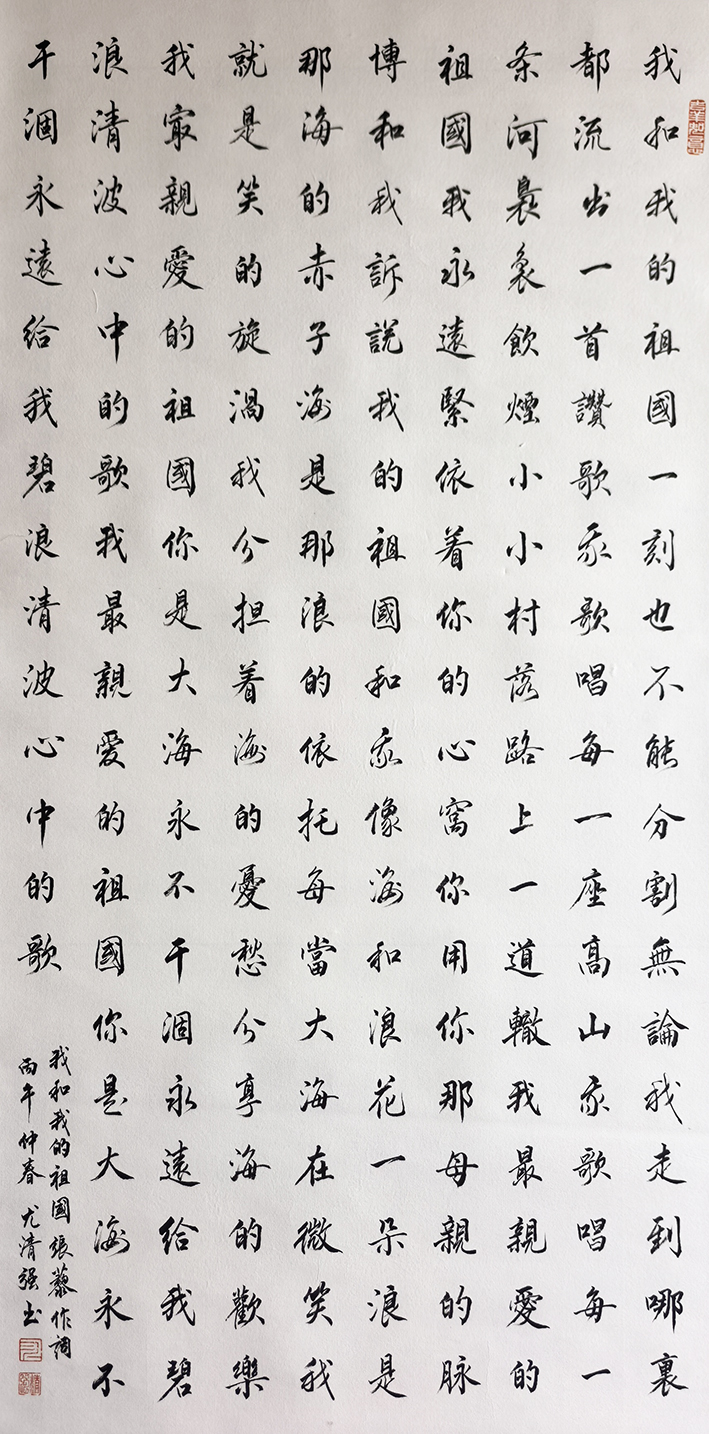 吉羊如意
我和我的祖國一刻也不能分割無論我走到哪裏
都流出一首讚歌我歌唱每一座高山我歌唱每一
条河裊袅飲煙小小村落路上一道轍我最親愛的
祖國我永遠緊依着你的心窩你用你那母親的脉
博和我訴説我的祖國和我像海和浪花一朵浪是
那海的赤子海是那浪的依托每當大海在微笑我
就是笑的旋渦我分担着海的憂愁分享海的歡樂
我最親愛的祖國你是大海永不干涸永遠給我碧
浪清波心中的歌我最親愛的祖國你是大海永不
干涸永遠給我碧浪清波心中的歌
我和我的祖國張藜作詞
丙午仲春尤清强书